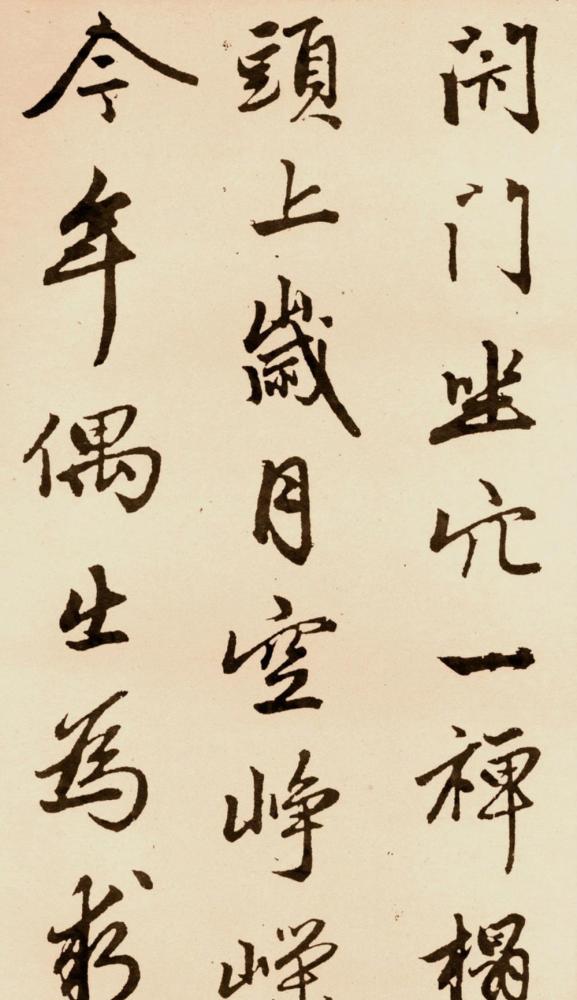 閉門坐穴一禪榻
頭上歲月空崢嶸
今年偶出為